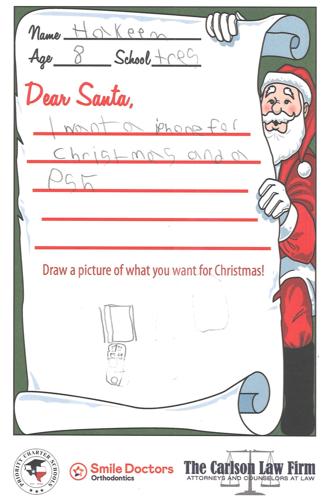 Name Hakeem
Age 8 School tres
Dear Santa,
I want a iphone for
christmas and a
PS5
Draw a picture of what you want for Christmas!
PRIORITY CHARTER SCHOOLS
Smile Doctors
Orthodontics
The Carlson Law Firm
ATTORNEYS AND COUNSELORS AT LAW